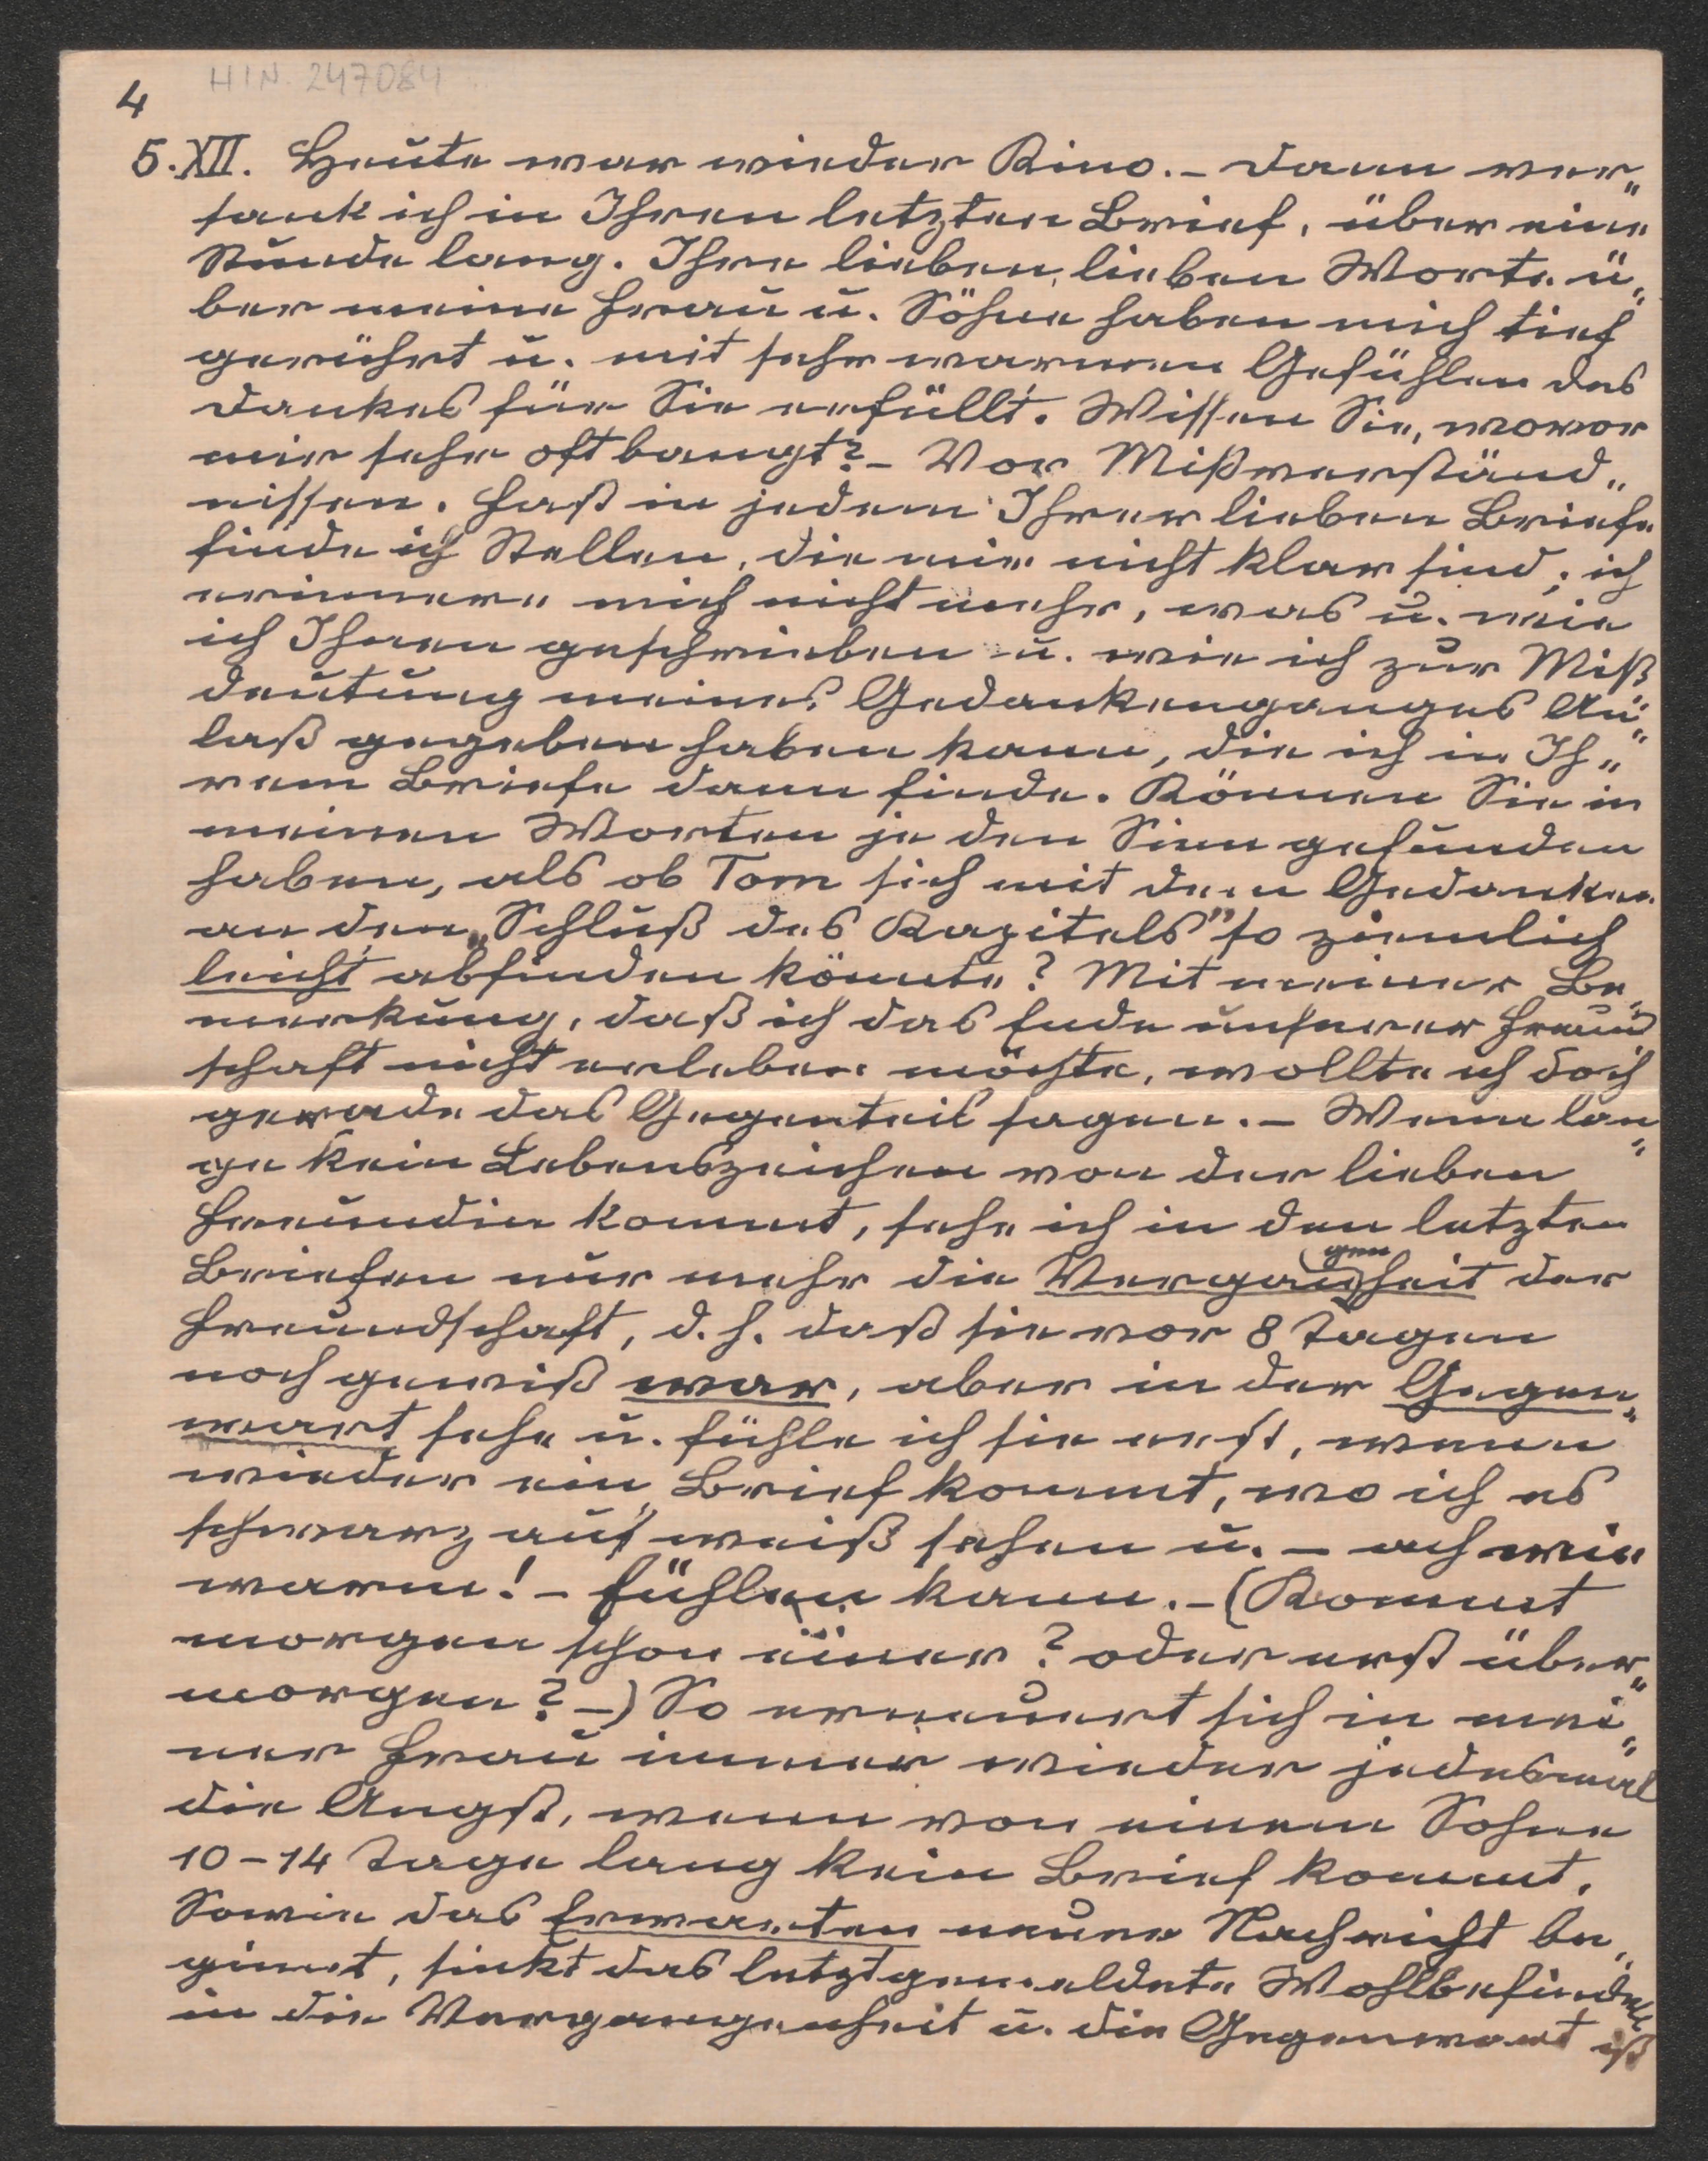 H I N. 247084
4
5. XII. Heute war wieder Kino. – Dann ver„
sank ich in Ihren letzten Brief, über eine
Stunde lang. Ihre lieben, lieben Worte ü„
ber meine Frau u. Söhne haben mich tief
gerührt u. mit sehr warmen Gefühlen des
Dankes für Sie erfüllt. Wissen Sie, wovor
mir sehr oft bangt? – Vor Mißverständ„
nissen. Fast in jedem Ihrer lieben Briefe
finde ich Stellen, die mir nicht klar sind; ich
erinnere mich nicht mehr, was u. wie
ich Ihnen geschrieben u. wie ich zur Miß
deutung meines Gedankenganges An„
laß gegeben haben kann, die ich in Ih„
rem Briefe dann finde. Können Sie in
meinen Worten je den Sinn gefunden
haben, als ob Tom sich mit dem Gedanken
an den „Schluß des Kapitels" so ziemlich
leicht abfinden könnte? Mit meiner Be„
merkung, daß ich das Ende unserer Freund
schaft nicht erleben möchte, wollte ich doch
gerade das Gegenteil sagen. – Wenn lan„
ge kein Lebenszeichen von der lieben
Freundin kommt, sehe ich in den letzten
Briefen nur mehr die Vergangenheit der
Freundschaft, d. h. daß sie vor 8 Tagen
noch gewiß war, aber in der Gegen„
wart sehe u. fühle ich sie erst, wenn
wieder ein Brief kommt, wo ich es
schwarz auf weiß sehen u. – ach wie
warm! – fühlen kann. – (Kommt
morgen schon einer? oder erst über„
morgen? –) So erneuert sich in mei„
ner Frau immer wieder jedesmal
die Angst, wenn von einem Sohne
10–14 Tage lang kein Brief kommt.
Sowie das Erwarten neuer Nachricht be„
ginnt, sinkt das letztgemeldete Wohlbefinden
in die Vergangenheit u. die Gegenwart ist